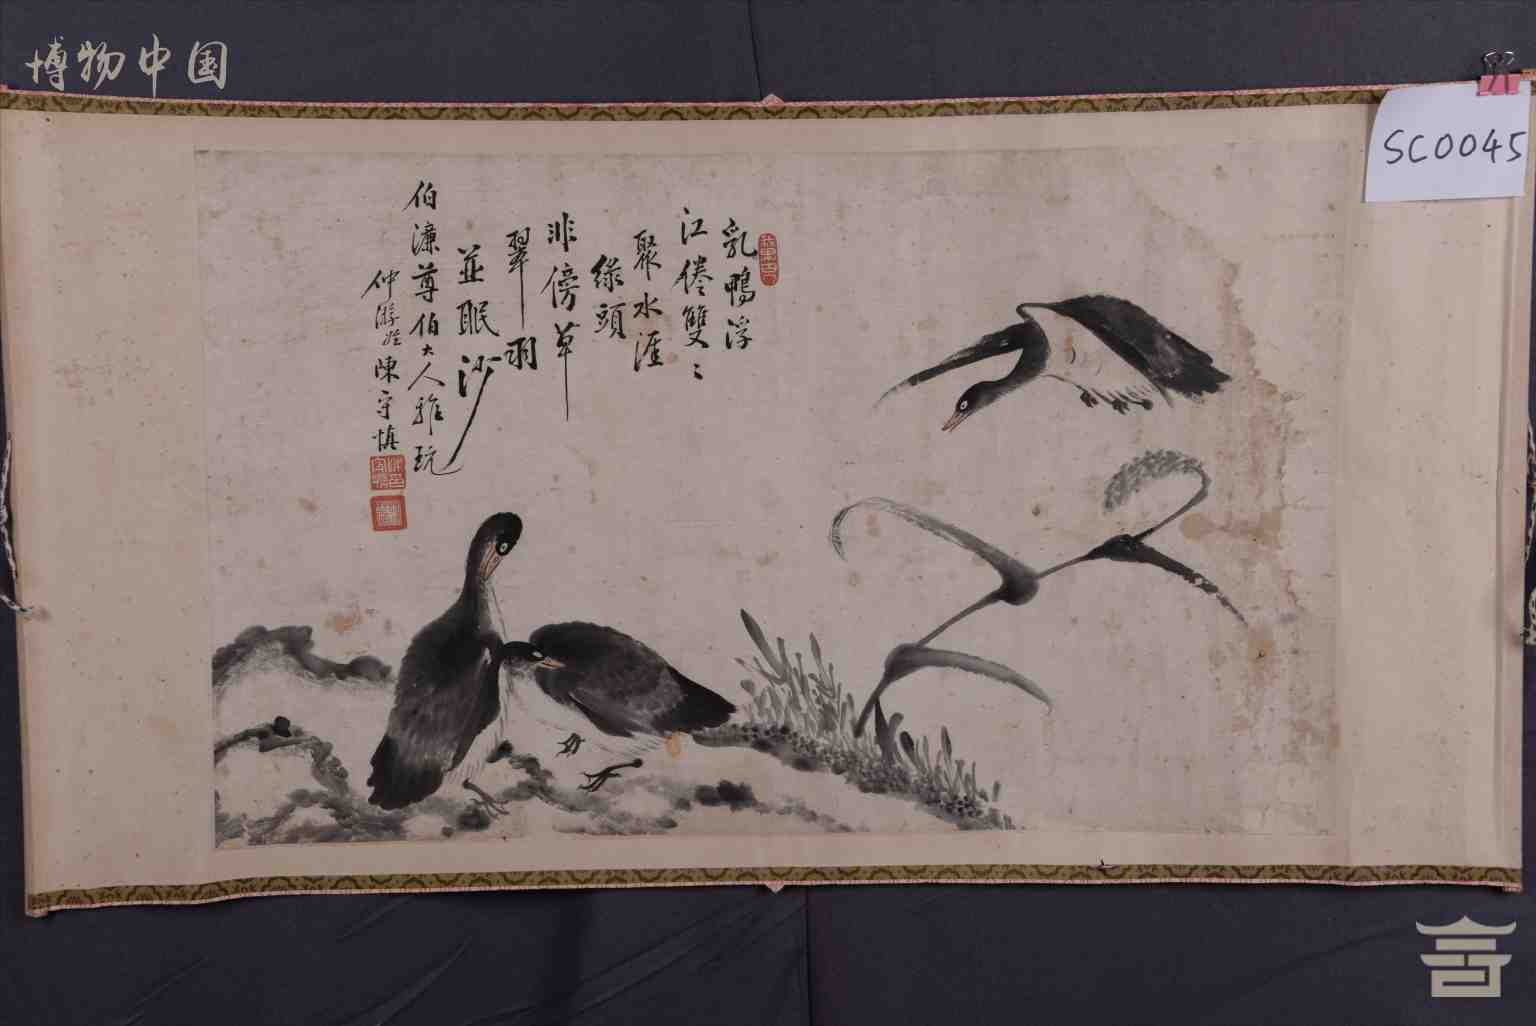 博物中国
SC0045
乳鴨浮
江倦雙〻
聚水涯
綠頭
非傍草
翠羽
並眠沙
伯濂尊伯大人雅玩
仲游姪陳守慎